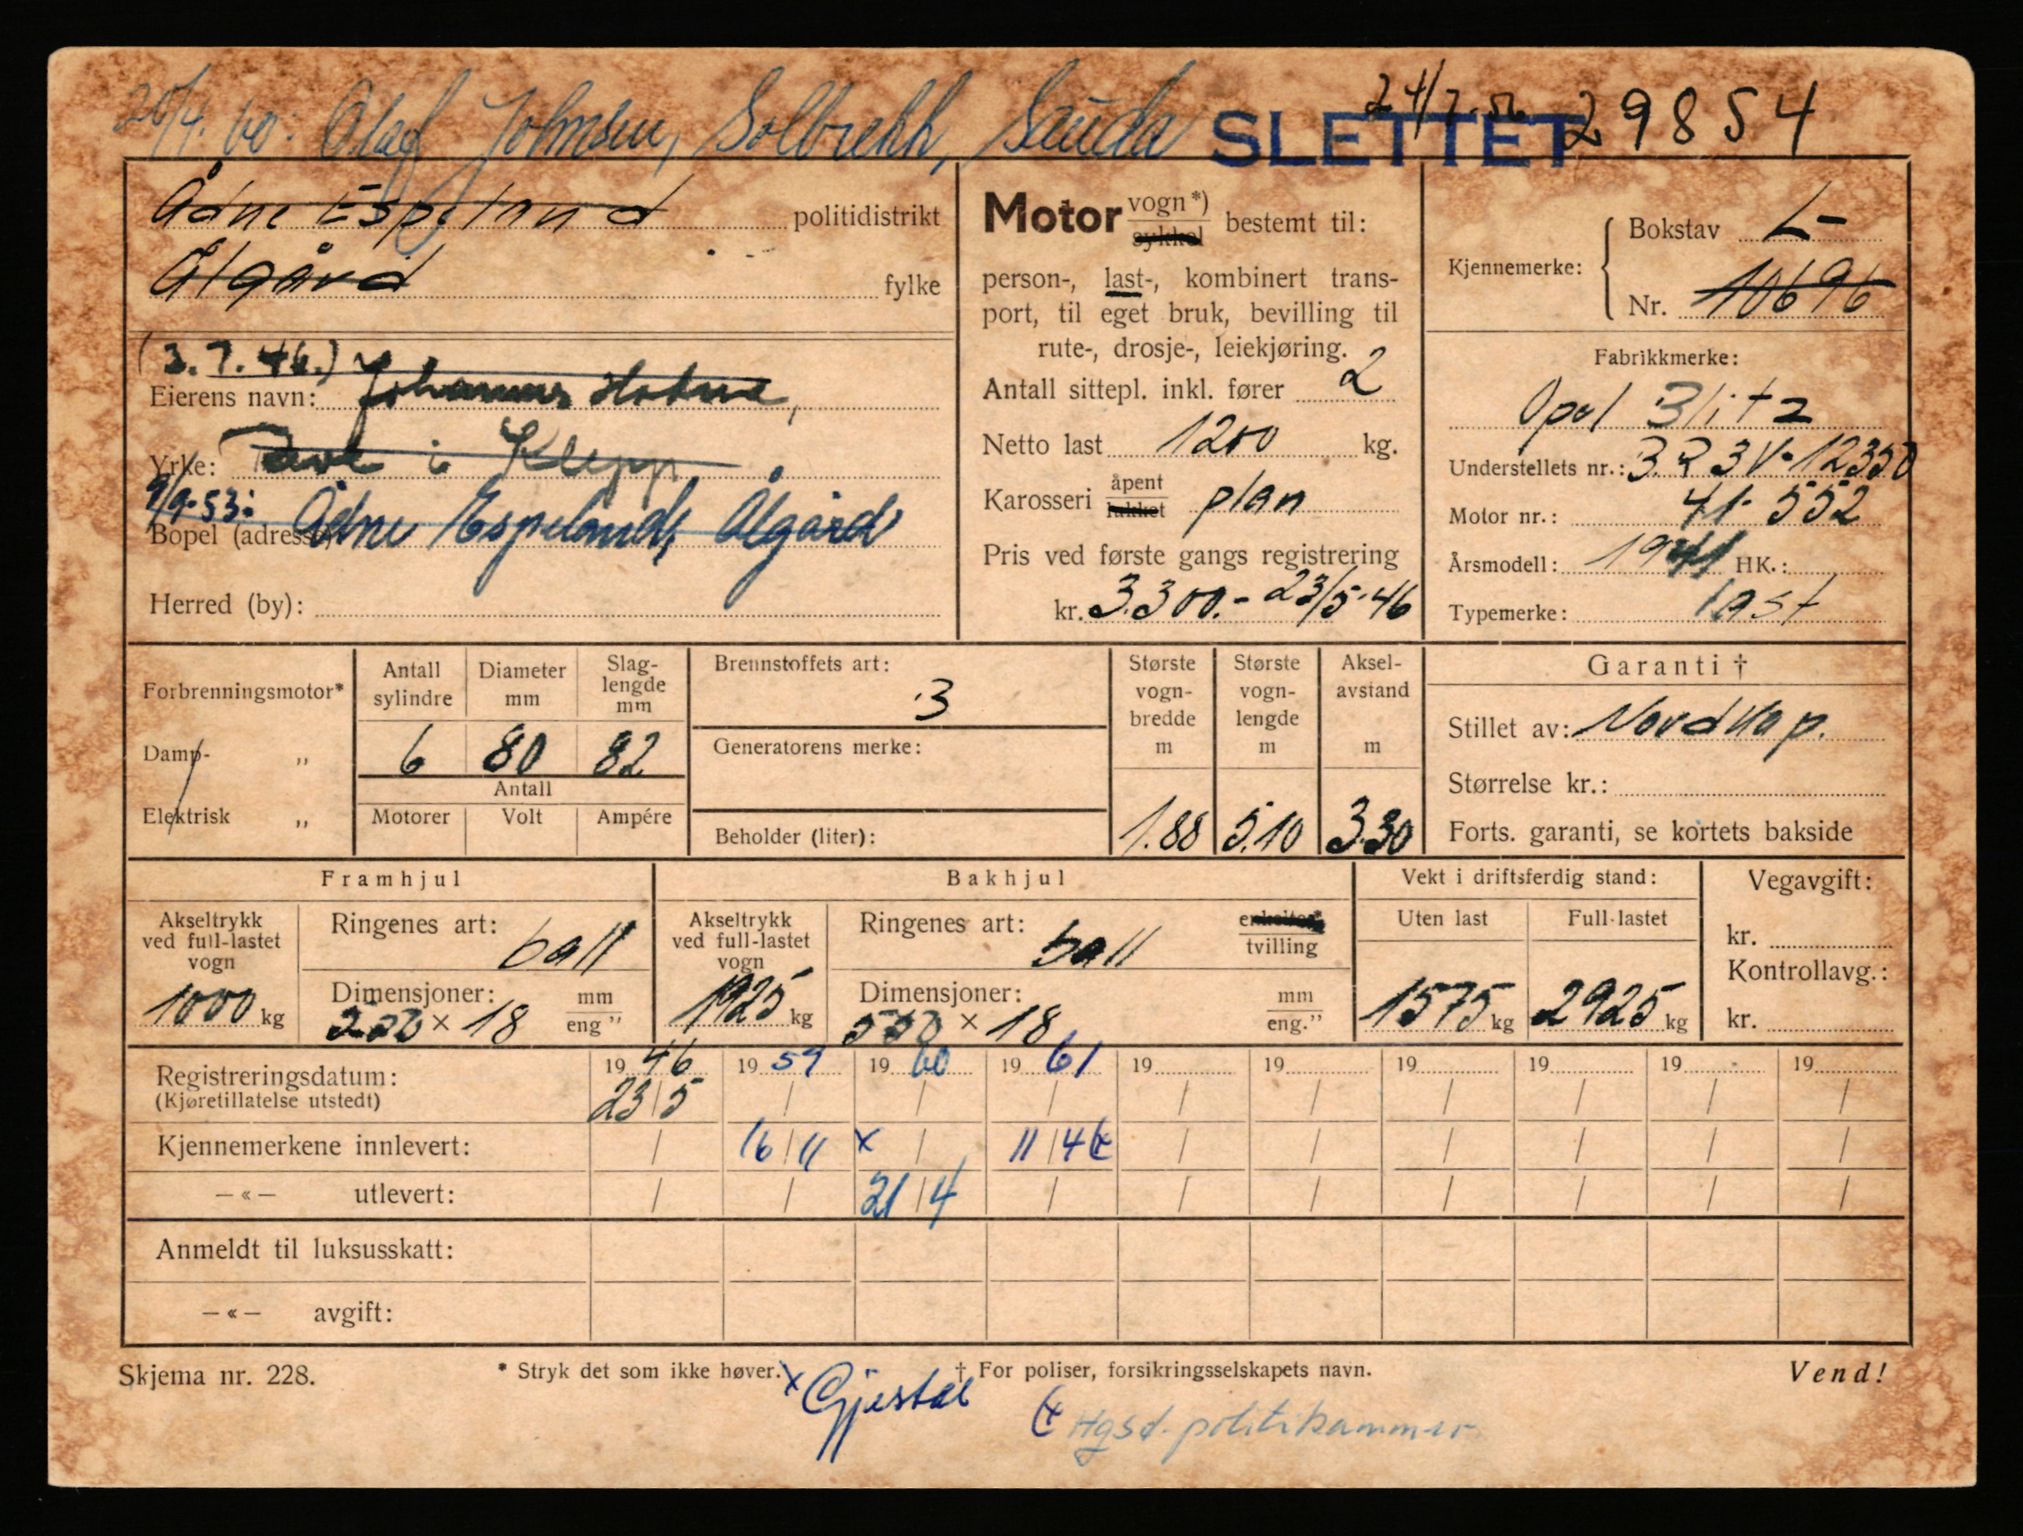 20/4.60: Olaf Johnsen, Solbrekk, Sauda SLETTET 24/7.56 29854
Ådne Espeland politidistrikt
Ålgård fylke
(3.7.46.)
Eierens navn: Johannes
Yrke: i Klepp
9/9-53: Ådne Espeland, Ålgård
Bopel (adresse)
Herred (by):
Motor vogn*) sykkel bestemt til:
person-, last-, kombinert trans-
port, til eget bruk, bevilling til
rute-, drosje-, leiekjøring.
Antall sittepl. inkl. fører 2
Netto last 1200 kg.
Karosseri åpent lukket plan
Pris ved første gangs registrering
kr. 3.300.- 23/5-46
Kjennemerke: Bokstav L-
Nr. 10696
Fabrikkmerke:
Opel Blitz
Understellets nr.: 3.R3V-12350
Motor nr.: 41-552
Årsmodell: 1941 HK.:
Typemerke: last
Forbrenningsmotor*
Damp- „
Elektrisk „
Antall sylindre 6
Diameter mm 80
Slag-lengde mm 82
Antall
Motorer Volt Ampére
Brennstoffets art: 3
Generatorens merke:
Beholder (liter):
Største vogn-bredde m 1.88
Største vogn-lengde m 5.10
Aksel-avstand m 3.30
Garanti †
Stillet av: Nordkap.
Størrelse kr.:
Forts. garanti, se kortets bakside
Framhjul
Akseltrykk ved full-lastet vogn 1000 kg
Ringenes art: ball
Dimensjoner: 550 × 18 mm eng."
Bakhjul
Akseltrykk ved full-lastet vogn 1925 kg
Ringenes art: ball enkelter* tvilling
Dimensjoner: 550 × 18 mm eng."
Vekt i driftsferdig stand:
Uten last 1575 kg
Full-lastet 2925 kg
Vegavgift:
kr.
Kontrollavg.:
kr.
Registreringsdatum: 1946 1959 1960 1961 19 19 19 19 19 19
(Kjøretillatelse utstedt) 23/5 / / / / / / / / /
Kjennemerkene innlevert: / 16/11 x / 11/4 (x / / / / / /
—«— utlevert: / / 21/4 / / / / / / /
Anmeldt til luksusskatt:
—«— avgift:
Skjema nr. 228. * Stryk det som ikke høver. † For poliser, forsikringsselskapets navn. Vend!
x Gjestal
(x Hgsd. politikammer